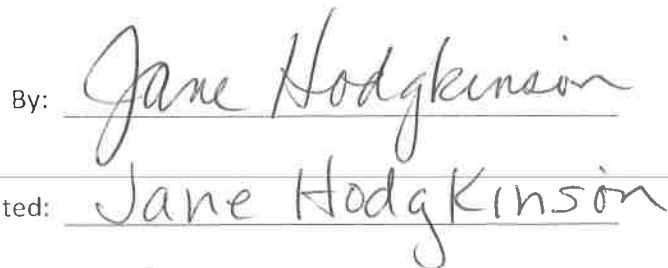 By: Jane Hodgkinson
ted: Jane Hodgkinson